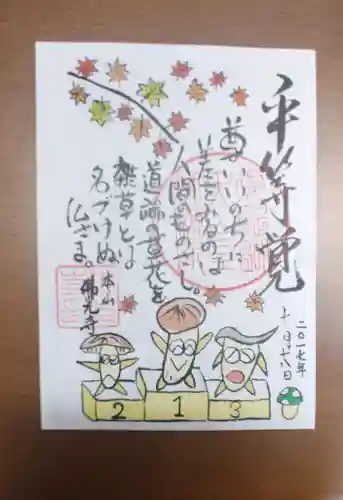 平等覚
尊いいのちに
差をつけるのは
人間のものさし。
道端の草花を
雑草とよ
名づけぬ
仏さま。
本山
佛光寺
二〇一七年
十一月十八日
2
1
3